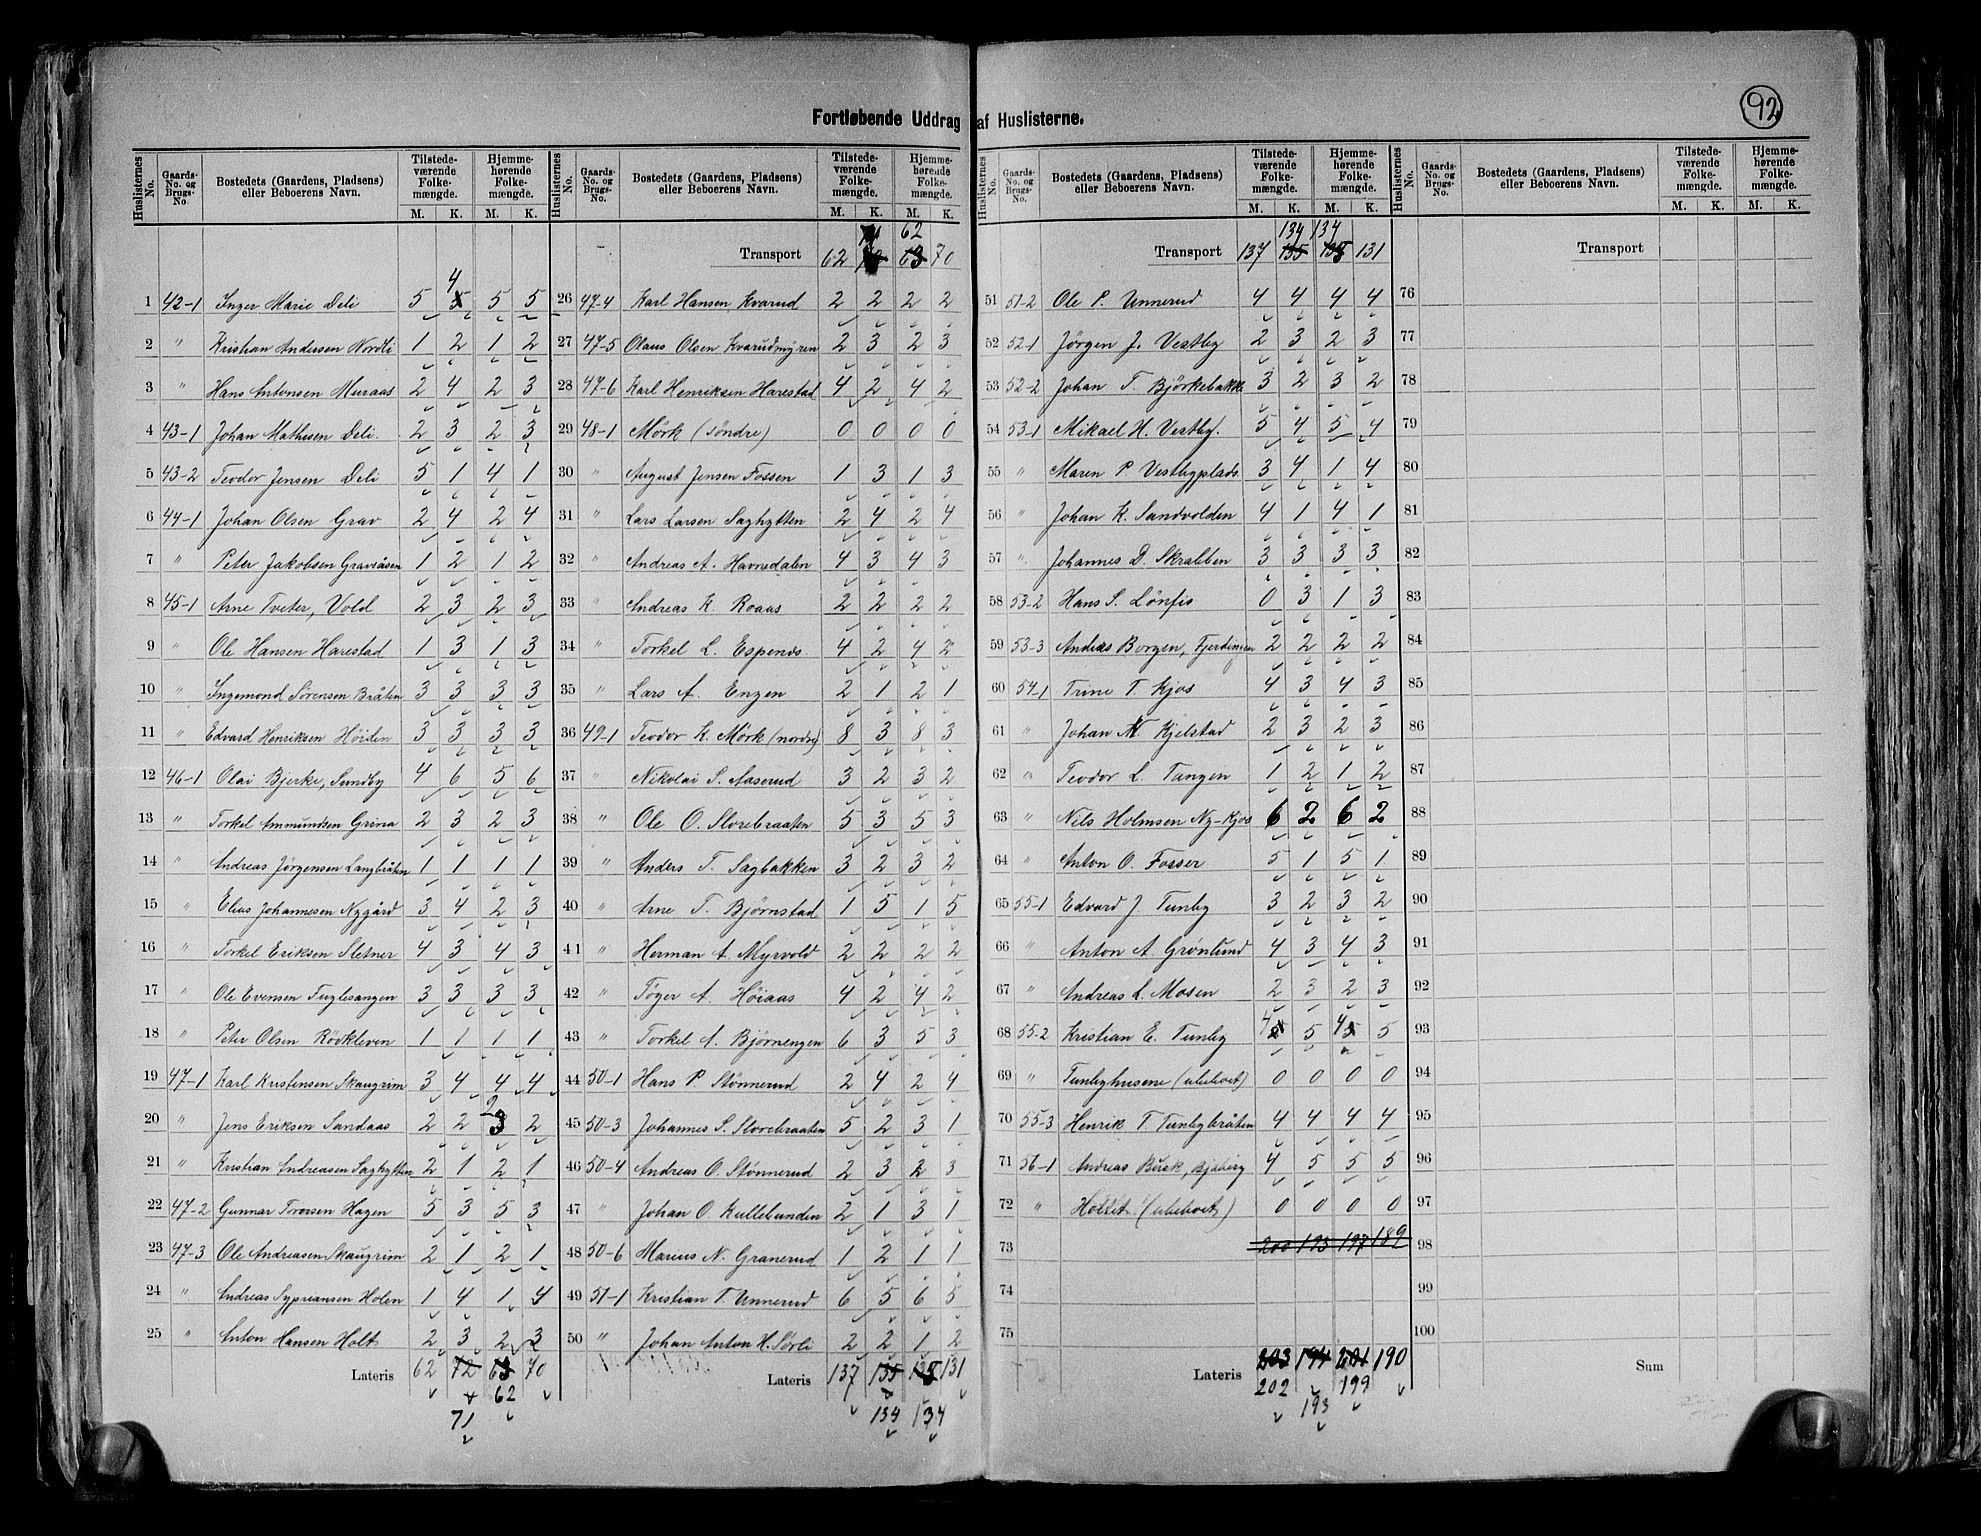 92
Fortløbende Uddrag af Huslisterne.
Huslisternes No. Gaards-No. og Brugs-No. Bostedets (Gaardens, Pladsens) eller Beboerens Navn. Tilstedeværende Folkemængde. M. K. Hjemmehørende Folkemængde. M. K.
1 42-1 Inger Marie Deli 5 4 5 5
2 " Kristian Andersen Nordli 1 2 1 2
3 " Hans Antonsen Muraas 2 4 2 3
4 43-1 Johan Mathisen Deli. 2 3 2 3
5 43-2 Teodor Jensen Deli 5 1 4 1
6 44-1 Johan Olsen Grav 2 4 2 4
7 " Peter Jakobsen Gravåsen 1 2 1 2
8 45-1 Arne Tveter, Vold 2 3 2 3
9 " Ole Hansen Harestad 1 3 1 3
10 " Ingemond Sörensen Bråten 3 3 3 3
11 " Edvard Henriksen Höiden 3 3 3 3
12 46-1 Olai Bjerke, Sundby 4 6 5 6
13 " Torkel Ammundsen Grina 2 3 2 3
14 " Andreas Jörgensen Langbråten 1 1 1 1
15 " Elius Johannesen Nygård 3 4 2 3
16 " Torkel Eriksen Sletner 4 3 4 3
17 " Ole Evensen Fuglesangen 3 3 3 3
18 " Peter Olsen Rövkleven 1 1 1 1
19 47-1 Karl Kristensen Skaugrim 3 4 4 4
20 " Jens Eriksen Sandaas 2 2 2 3 2
21 " Kristian Andreasen Saghytten 2 1 2 1
22 47-2 Gunnar Torersen Hagen 5 3 5 3
23 47-3 Ole Andreasen Skaugrim 2 1 2 1
24 " Andreas Sypriansen Holen 1 4 1 4
25 " Anton Hansen Holt 2 3 2 3
Lateris 62 72 63 70
62
71
Transport 62 63 70
62
26 47-4 Karl Hansen Kvarud 2 2 2 2
27 47-5 Olaus Olsen Kvarudmyren 2 3 2 3
28 47-6 Karl Henriksen Harestad 4 2 4 2
29 48-1 Mörk (söndre) 0 0 0 0
30 " August Jensen Fossen 1 3 1 3
31 " Lars Larsen Saghytten 2 4 2 4
32 " Andreas A. Havnedalen 4 3 4 3
33 " Andreas K. Roaas 2 2 2 2
34 " Torkel L. Espenes 4 2 4 2
35 " Lars A. Engen 2 1 2 1
36 49-1 Teodor K. Mörk (nordre) 8 3 8 3
37 " Nikolai S. Aaserud 3 2 3 2
38 " Ole O. Storebraaten 5 3 5 3
39 " Anders T. Sagbakken 3 2 3 2
40 " Arne T. Bjørnstad 1 5 1 5
41 " Herman A. Myrvold 2 2 2 2
42 " Töger A. Höiaas 4 2 4 2
43 " Torkel A. Bjørnengen 6 3 5 3
44 50-1 Hans P Stönnerud 2 4 2 4
45 50-3 Johannes S. Storebraaten 5 2 3 1
46 50-4 Andreas O. Stönnerud 2 3 2 3
47 " Johan O. Kullebunden 2 1 3 1
48 50-6 Marius N. Granerud 1 2 1 1
49 51-1 Kristian T. Unnerud 6 5 6 5
50 " Johan Anton H. Sörli 2 2 1 2
Lateris 137 135 135 131
134 134
134 134
Transport 137 135 135 131
51 51-2 Ole P. Unnerud 4 4 4 4
52 52-1 Jørgen J. Vestby 2 3 2 3
53 52-2 Johan T. Björkebakke 3 2 3 2
54 53-1 Mikael H. Vestby. 5 4 5 4
55 " Maren P Vestbyplads. 3 4 1 4
56 " Johan K. Sandvolden 4 1 4 1
57 " Johannes D. Skrabben 3 3 3 3
58 53-2 Hans S. Lönfis 0 3 1 3
59 53-3 Andreas Borgen, Fjerdingen 2 2 2 2
60 54-1 Trine T. Kjos 4 3 4 3
61 " Johan M Kjelstad 2 3 2 3
62 " Teodor L. Tangen 1 2 1 2
63 " Nils Holmsen Ny-Kjos 6 2 6 2
64 " Anton O. Fosser 5 1 5 1
65 55-1 Edvard J. Tunby 3 2 3 2
66 " Anton A. Grønlund 4 3 4 3
67 " Andreas L. Mosen 2 3 2 3
68 55-2 Kristian E. Tunby 4 5 4 5
69 " Tunbyhusene (ubeboet) 0 0 0 0
70 55-3 Henrik T Tunbybråten 4 4 4 4
71 56-1 Andreas Busk, Bjaberg 4 5 5 5
72 " Holtet (ubeboet) 0 0 0 0
73 200 193 197 189
74
75
Lateris 203 194 201 190
202 199
193
Transport
76
77
78
79
80
81
82
83
84
85
86
87
88
89
90
91
92
93
94
95
96
97
98
99
100
Sum